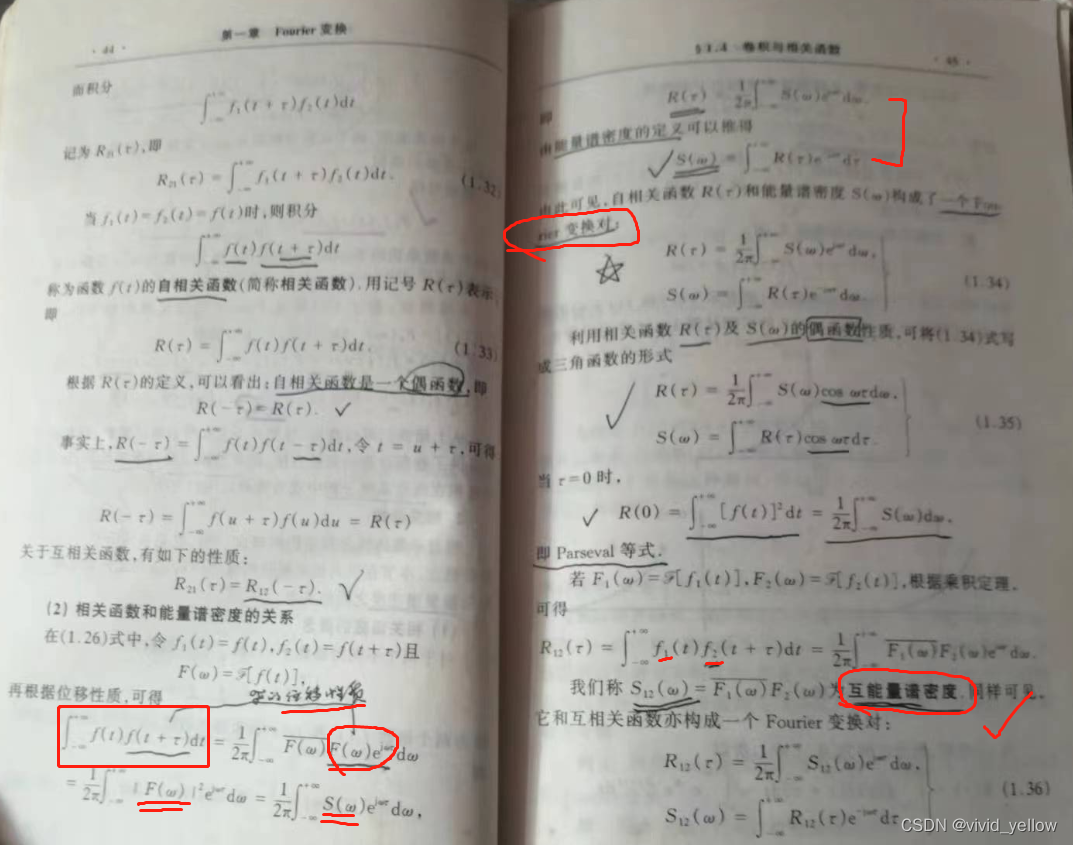 · 44 ·
第一章 Fourier 变换
面积分
∫_{-∞}^{+∞} f₁(t + τ)f₂(t)dt
记为 R₂₁(τ),即
R₂₁(τ) = ∫_{-∞}^{+∞} f₁(t + τ)f₂(t)dt. (1.32)
当 f₁(t)=f₂(t)=f(t)时,则积分
∫_{-∞}^{+∞} f(t)f(t + τ)dt
称为函数 f(t)的自相关函数(简称相关函数).用记号 R(τ)表示,
即
R(τ) = ∫_{-∞}^{+∞} f(t)f(t + τ)dt. (1.33)
根据 R(τ)的定义,可以看出:自相关函数是一个偶函数,即
R(-τ) = R(τ).
事实上,R(-τ) = ∫_{-∞}^{+∞} f(t)f(t - τ)dt,令 t = u + τ,可得
R(-τ) = ∫_{-∞}^{+∞} f(u + τ)f(u)du = R(τ)
关于互相关函数,有如下的性质:
R₂₁(τ) = R₁₂(-τ).
(2) 相关函数和能量谱密度的关系
在(1.26)式中,令 f₁(t)=f(t),f₂(t)=f(t+τ)且
F(ω) = ℱ[f(t)],
再根据位移性质,可得
的位移性质
∫_{-∞}^{+∞} f(t)f(t + τ)dt = 1/2π ∫_{-∞}^{+∞} \overline{F(ω)} F(ω)e^{jωτ}dω
= 1/2π ∫_{-∞}^{+∞} |F(ω)|²e^{jωτ}dω = 1/2π ∫_{-∞}^{+∞} S(ω)e^{jωτ}dω,
§1.4 卷积与相关函数
· 45 ·
即
R(τ) = 1/2π ∫_{-∞}^{+∞} S(ω)e^{jωτ}dω.
由能量谱密度的定义可以推得
S(ω) = ∫_{-∞}^{+∞} R(τ)e^{-jωτ}dτ
由此可见,自相关函数 R(τ)和能量谱密度 S(ω)构成了一个 Fou-
rier 变换对:
R(τ) = 1/2π ∫_{-∞}^{+∞} S(ω)e^{jωτ}dω,
S(ω) = ∫_{-∞}^{+∞} R(τ)e^{-jωτ}dω.
(1.34)
利用相关函数 R(τ)及 S(ω)的偶函数性质,可将(1.34)式写
成三角函数的形式
R(τ) = 1/2π ∫_{-∞}^{+∞} S(ω)cos ωτdω,
S(ω) = ∫_{-∞}^{+∞} R(τ)cos ωτdτ.
(1.35)
当 τ=0 时,
R(0) = ∫_{-∞}^{+∞} [f(t)]²dt = 1/2π ∫_{-∞}^{+∞} S(ω)dω,
即 Parseval 等式.
若 F₁(ω)=ℱ[f₁(t)],F₂(ω)=ℱ[f₂(t)],根据乘积定理,
可得
R₁₂(τ) = ∫_{-∞}^{+∞} f₁(t)f₂(t + τ)dt = 1/2π ∫_{-∞}^{+∞} \overline{F₁(ω)}F₂(ω)e^{jωτ}dω.
我们称 S₁₂(ω) = \overline{F₁(ω)}F₂(ω)为互能量谱密度.同样可见,
它和互相关函数亦构成一个 Fourier 变换对:
R₁₂(τ) = 1/2π ∫_{-∞}^{+∞} S₁₂(ω)e^{jωτ}dω,
S₁₂(ω) = ∫_{-∞}^{+∞} R₁₂(τ)e^{-jωτ}dτ
(1.36)
CSDN @vivid_yellow